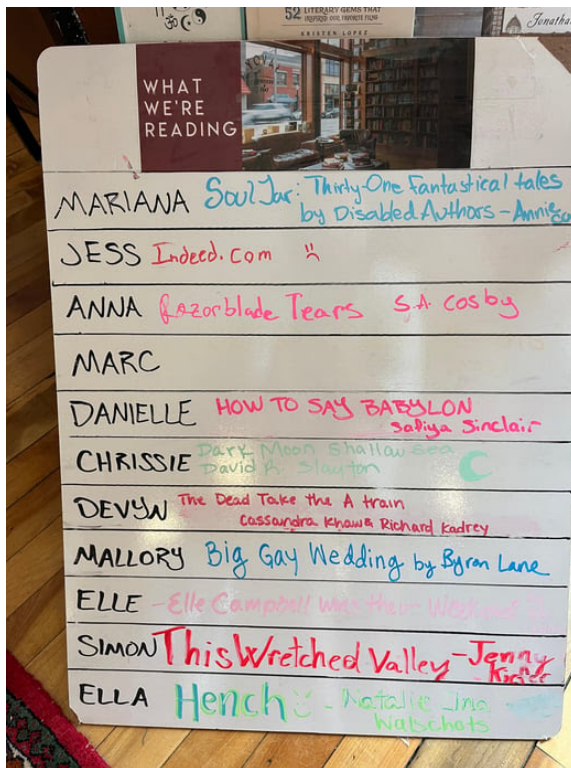 52 LITERARY GEMS THAT
INSPIRED OUR FAVORITE FILMS
KRISTEN LOPEZ
Jonatha
WHAT
WE'RE
READING
MARIANA Soul Jar: Thirty-One Fantastical tales
by Disabled Authors - Annie
JESS Indeed.com :(
ANNA Razorblade Tears S.A. Cosby
MARC
DANIELLE HOW TO SAY BABYLON
Safiya Sinclair
CHRISSIE Dark Moon Shallow Sea
David R. Slayton
DEVYN The Dead Take the A train
Cassandra Khaw & Richard Kadrey
MALLORY Big Gay Wedding by Byron Lane
ELLE - Elle Campbell was their
SIMON This Wretched Valley - Jenny
Kiefer
ELLA Hench :) - Natalie Zina
Walschots